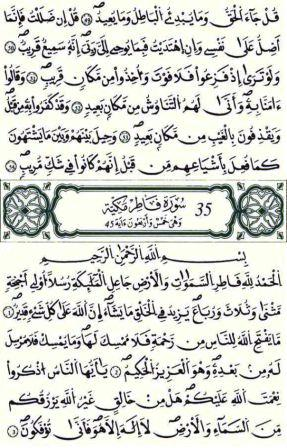 قُلْ جَآءَ ٱلْحَقُّ وَمَا يُبْدِئُ ٱلْبَٰطِلُ وَمَا يُعِيدُ ٤٩ قُلْ إِن ضَلَلْتُ فَإِنَّمَآ
أَضِلُّ عَلَىٰ نَفْسِى وَإِنِ ٱهْتَدَيْتُ فَبِمَا يُوحِىٓ إِلَىَّ رَبِّىٓ إِنَّهُۥ سَمِيعٌ قَرِيبٌ ٥٠
وَلَوْ تَرَىٰٓ إِذْ فَزِعُوا۟ فَلَا فَوْتَ وَأُخِذُوا۟ مِن مَّكَانٍ قَرِيبٍ ٥١ وَقَالُوٓا۟
ءَامَنَّا بِهِۦ وَأَنَّىٰ لَهُمُ ٱلتَّنَاوُشُ مِن مَّكَانٍۭ بَعِيدٍ ٥٢ وَقَدْ كَفَرُوا۟ بِهِۦ مِن قَبْلُ
وَيَقْذِفُونَ بِٱلْغَيْبِ مِن مَّكَانٍۭ بَعِيدٍ ٥٣ وَحِيلَ بَيْنَهُمْ وَبَيْنَ مَا يَشْتَهُونَ
كَمَا فُعِلَ بِأَشْيَاعِهِم مِّن قَبْلُ إِنَّهُمْ كَانُوا۟ فِى شَكٍّ مُّرِيبٍۭ ٥٤
35 سُورَةُ فَاطِرٍ مَكِّيَّة
وَهِىَ خَمْسٌ وَأَرْبَعُونَ ءَايَة 45
بِسْمِ ٱللَّهِ ٱلرَّحْمَٰنِ ٱلرَّحِيمِ
ٱلْحَمْدُ لِلَّهِ فَاطِرِ ٱلسَّمَٰوَٰتِ وَٱلْأَرْضِ جَاعِلِ ٱلْمَلَٰٓئِكَةِ رُسُلًا أُو۟لِىٓ أَجْنِحَةٍ
مَّثْنَىٰ وَثُلَٰثَ وَرُبَٰعَ يَزِيدُ فِى ٱلْخَلْقِ مَا يَشَآءُ إِنَّ ٱللَّهَ عَلَىٰ كُلِّ شَىْءٍ قَدِيرٌ ١
مَّا يَفْتَحِ ٱللَّهُ لِلنَّاسِ مِن رَّحْمَةٍ فَلَا مُمْسِكَ لَهَا وَمَا يُمْسِكْ فَلَا مُرْسِلَ
لَهُۥ مِنۢ بَعْدِهِۦ وَهُوَ ٱلْعَزِيزُ ٱلْحَكِيمُ ٢ يَٰٓأَيُّهَا ٱلنَّاسُ ٱذْكُرُوا۟
نِعْمَتَ ٱللَّهِ عَلَيْكُمْ هَلْ مِنْ خَٰلِقٍ غَيْرُ ٱللَّهِ يَرْزُقُكُم
مِّنَ ٱلسَّمَآءِ وَٱلْأَرْضِ لَآ إِلَٰهَ إِلَّا هُوَ فَأَنَّىٰ تُؤْفَكُونَ ٣